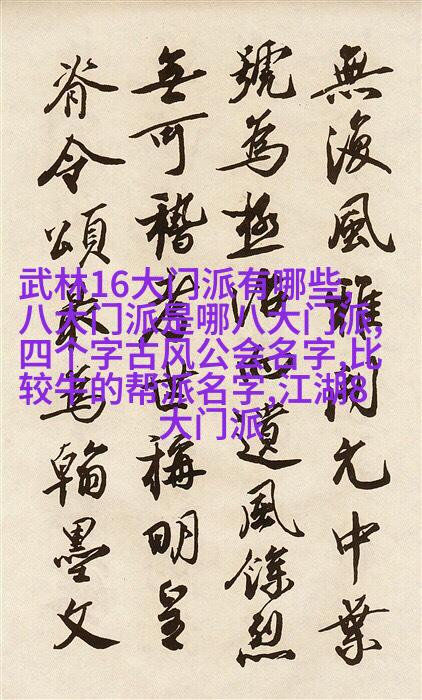 無復風雅開元中葉
號為極治遺風餘烈
無可稽世稱明皇
脊令頌為翰墨文
武林16大门派有哪些,
八大门派是哪八大门派,
四个字古风公会名字,比
较牛的帮派名字,江湖8
大门派